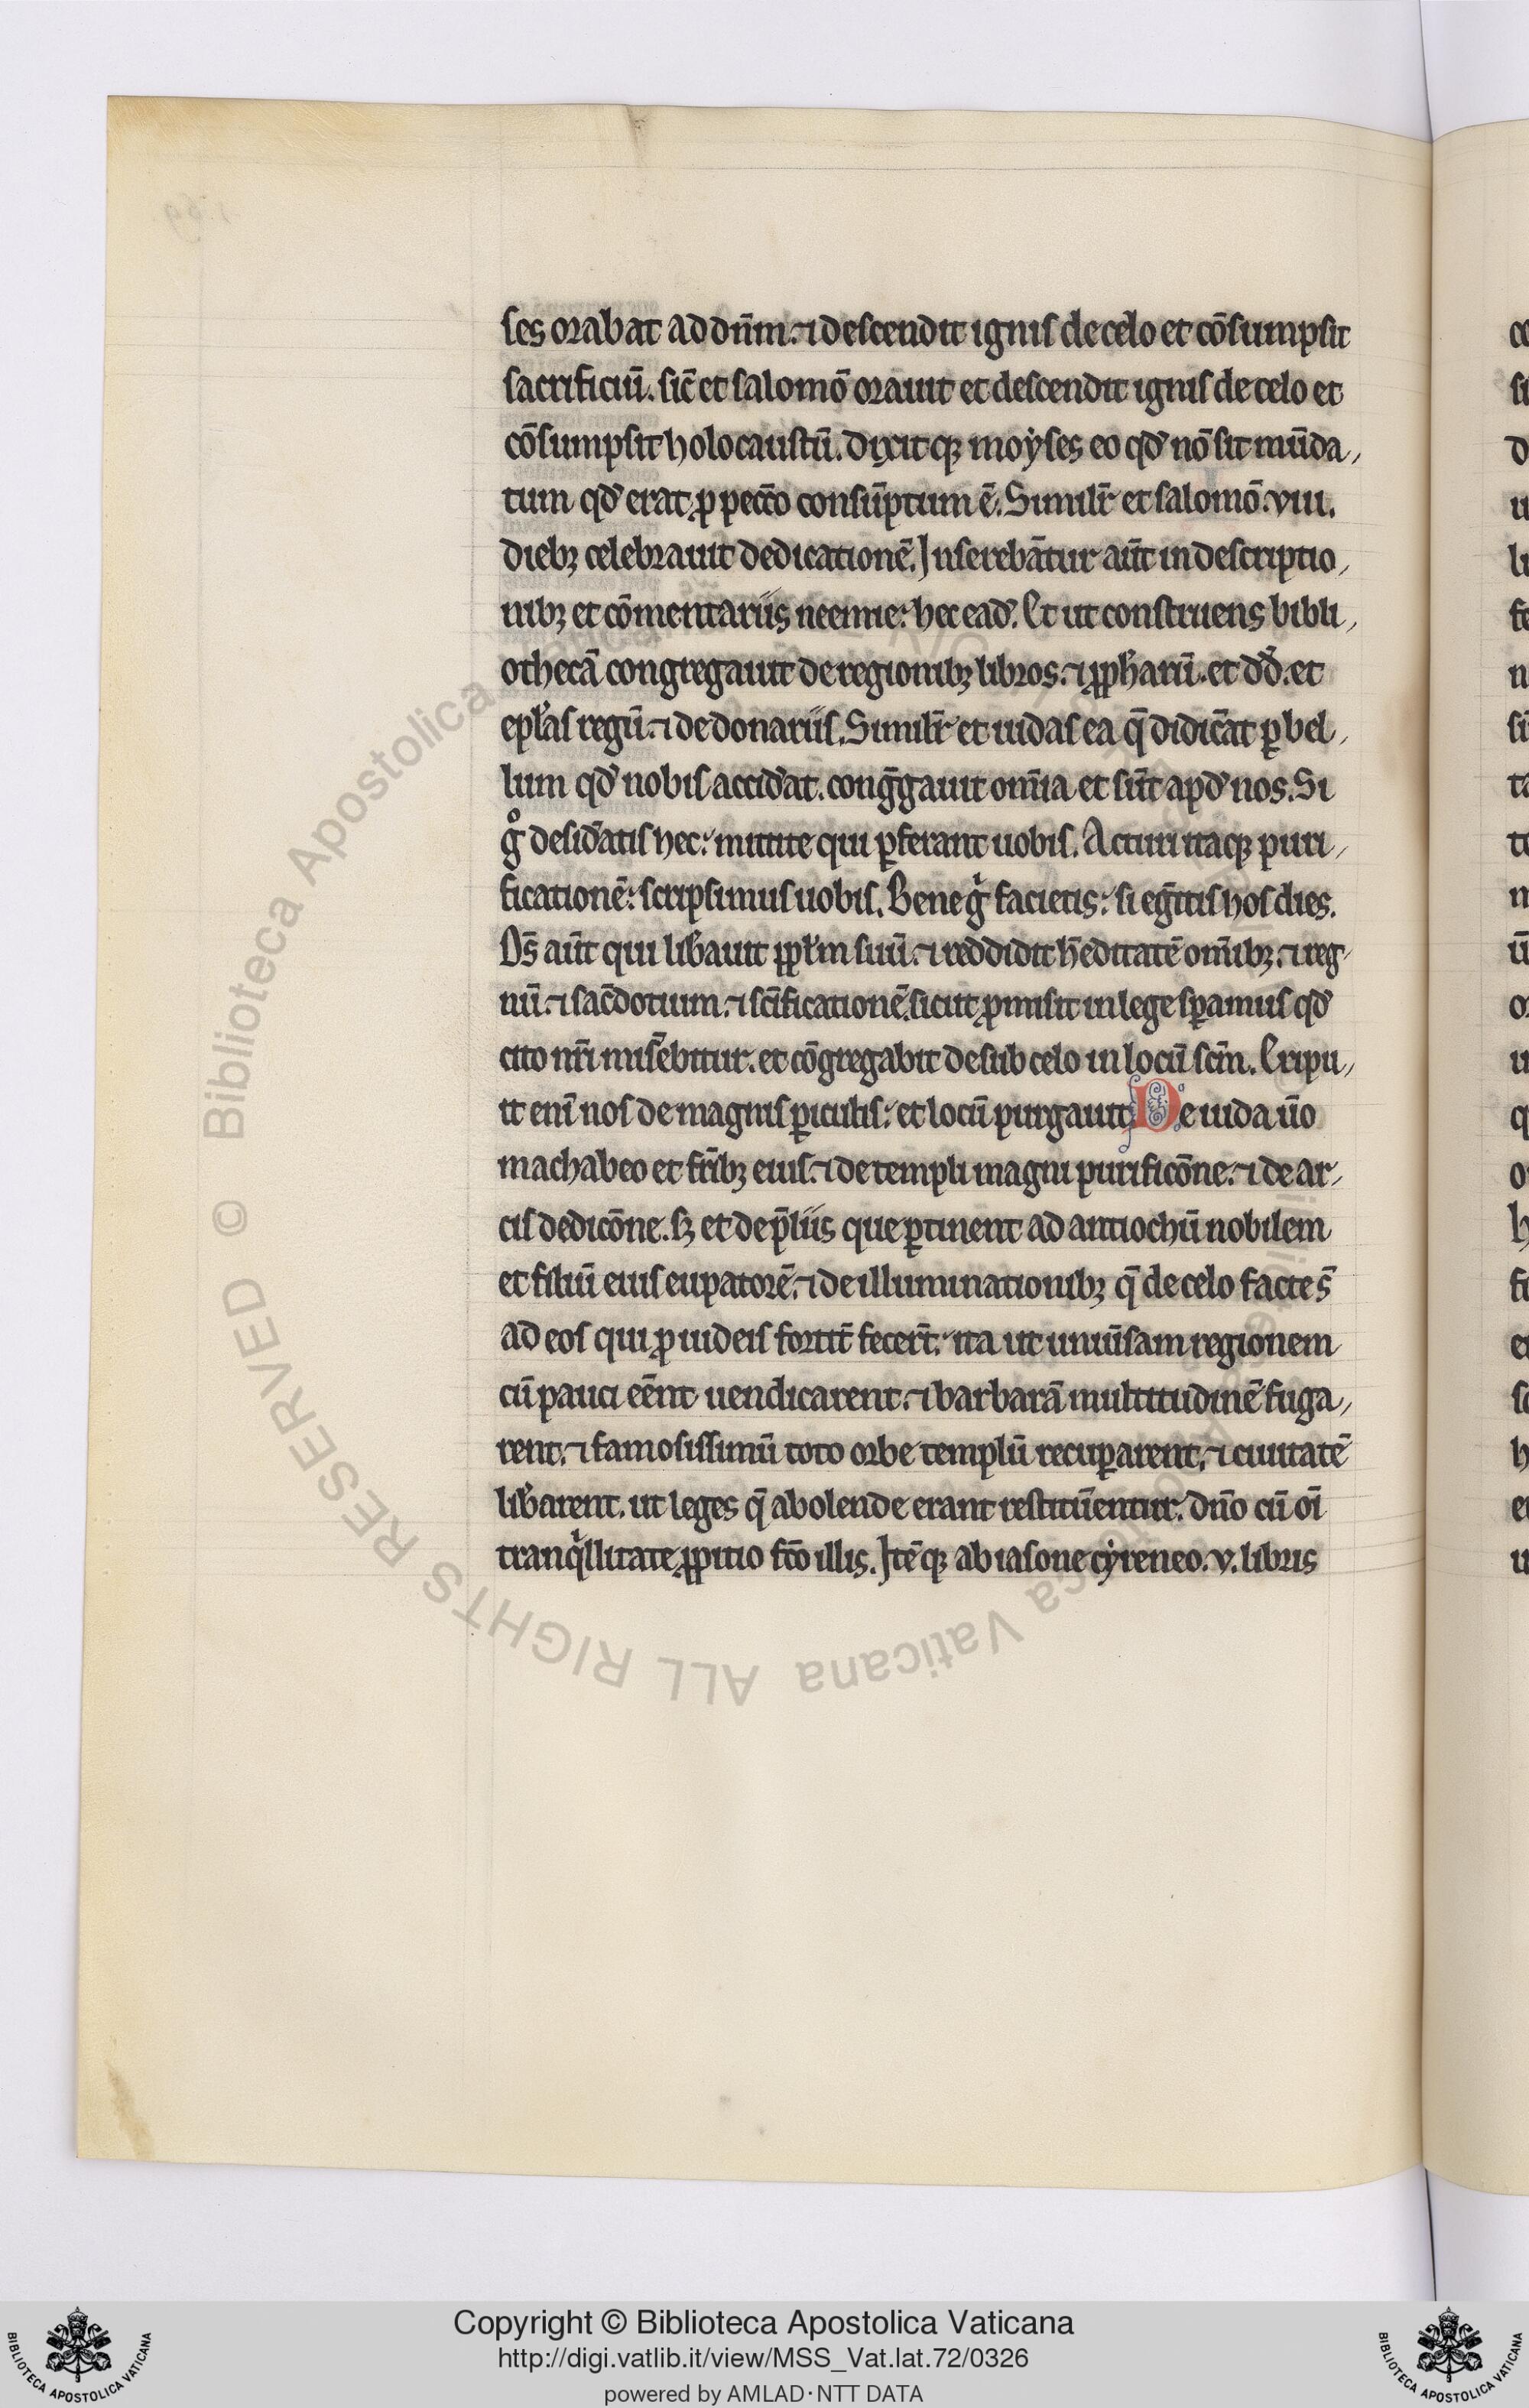 ses orabat ad dn̄m. ⁊ descendit ignis de celo et cōsumpsit
sacrificiū. sic̄ et salomō orauit et descendit ignis de celo et
cōsumpsit holocaustū. dixitqꝫ moẏses eo qd̓ nō sit mūda
tum qd̓ erat ꝓ pecc̄o consūptum ē. Similit̄ et salomō. viii.
diebꝫ celebrauit dedicationē. Inserebāntur aūt in descriptio
nibꝫ et cōmentariis neemie. hec ead̓. Et ut construens bibli
othecā congregauit de regionibꝫ libros. ⁊ ꝓph̓arū. et dd̓. et
ep̄las regū. ⁊ de donariis. Similit̄ et iudas ea q̄ didic̄at ꝑ bel
lum qd̓ nobis accid̓at. congḡauit om̄ia et sūt apd̓ nos. Si
gͦ desid̓atis hec. mittite qui ꝑferant uobis. Acturi itaqꝫ puri
ficationē. scripsimus uobis. Bene gͥ facietis. si eḡitis hos dies.
Ds̄ aūt qui lib̓auit ppl̄m suū. ⁊ reddidit h̄editatē om̄ibꝫ. ⁊ reg
nū. ⁊ sac̄dotium. ⁊ sc̄ificationē. sicut ꝓmisit in lege sꝑamus qd̓
cito nr̄i mis̄ebitur. et cōgregabit de sub celo in locū sc̄m. Eripu
it enī nos de magnis ꝑiculis. et locū purgauit. De iuda ūo
machabeo et fr̄ibꝫ eius. ⁊ de templi magni purificōne. ⁊ de ar
cis dedicōne. sꝫ et de p̄liis que ꝑtinent ad antiochū nobilem
et filiū eius eupatorē. ⁊ de illuminationibꝫ q̄ de celo facte s̄
ad eos qui ꝓ iudeis fortit̄ fecer̄t. ita ut uniūsam regionem
cū pauci eēnt uendicarent. ⁊ barbarā multitudinē fuga
rent. ⁊ famosissimū toto orbe templū recuꝑarent. ⁊ ciuitatē
lib̓arent. ut leges q̄ abolende erant restitūentur. dn̄o cū oī
tranqͥllitate ꝓpitio fc̄o illis. Itēqꝫ ab iasone cẏreneo. v. libris
© Biblioteca Apostolica Vaticana ALL RIGHTS RESERVED
Copyright © Biblioteca Apostolica Vaticana
http://digi.vatlib.it/view/MSS_Vat.lat.72/0326
powered by AMLAD·NTT DATA
BIBLIOTECA APOSTOLICA VATICANA
BIBLIOTECA APOSTOLICA VATICANA